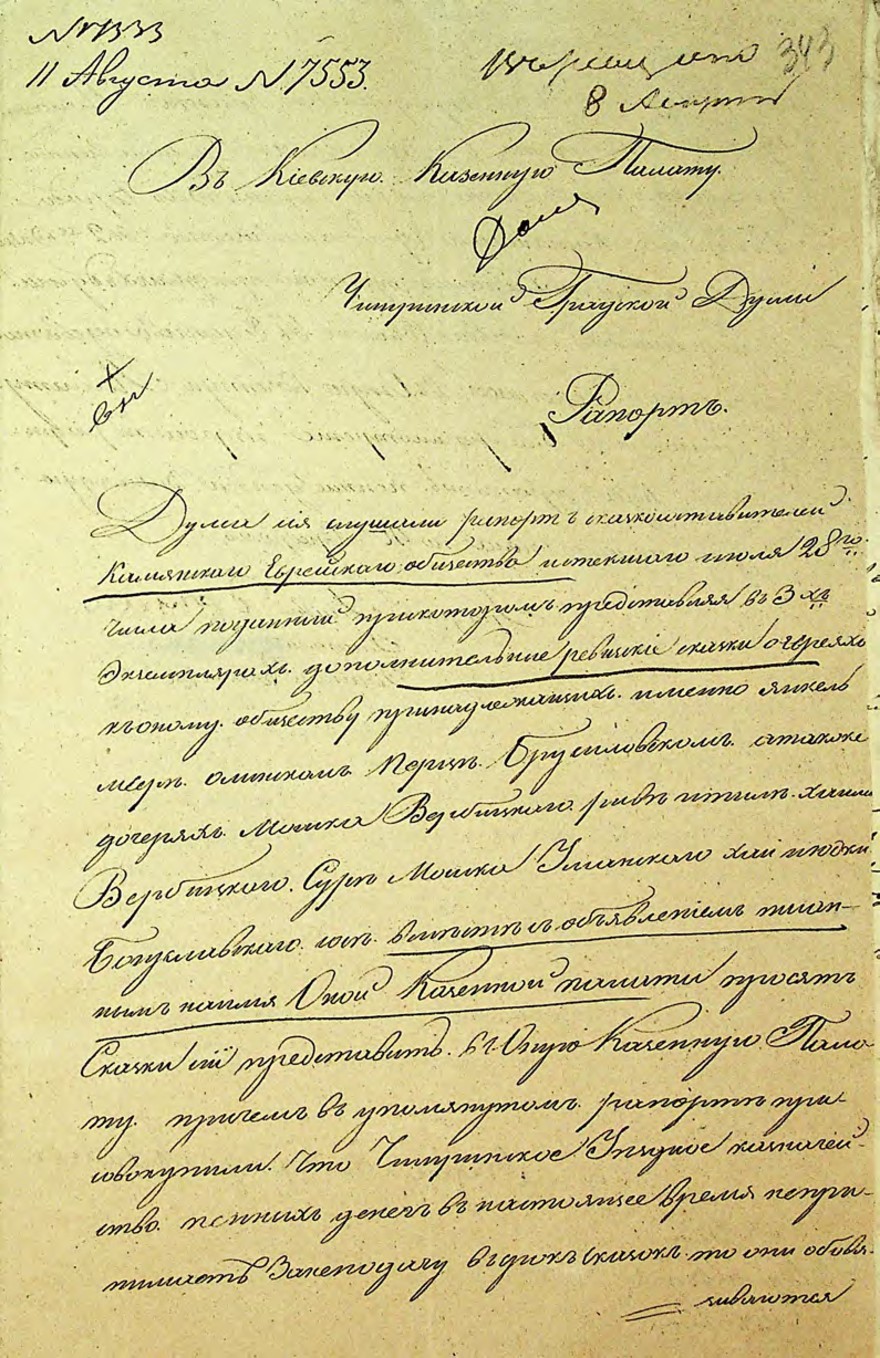 № 1333
11 Августа № 7553.
343
8 Августа
Въ Кіевскую Казенную Палату.
Чигиринской Градской Думы
Рапортъ.
Дума сія слушали рапортъ сказкоставителей
Камянскаго Еврейскаго общества истекшаго июля 28го
числа поданный при которомъ представляя въ 3хъ
Экземплярахъ дополнительные ревискіе сказки о евреяхъ
къ оному обществу принадлежащихъ именно Янкель
Меерѣ Брусиловскомъ а также
дочеряхъ Мошка Вербицкаго
Вербицкаго. Сурѣ Мошка Уманскаго Хаи Июдки
Богуславскаго вместѣ съ объявленіемъ писан-
нымъ на имя Оной Казенной палаты просятъ
Сказки сіи представить въ Оную Казенную Пала-
ту. причемъ въ упомянутомъ рапортѣ при-
совокупили. Что Чигиринское Уездное казначей-
ство пенныхъ денегъ въ настоящее Время непри-
нимаетъ За неподачу въ срокъ Сказокъ то они обовя-
зываются